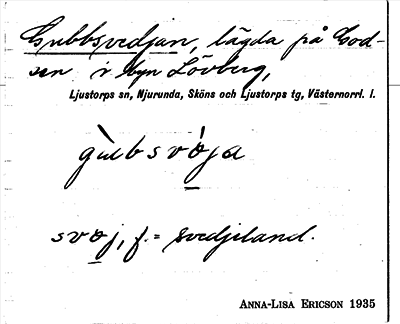 Gubbsvedjan, lägda på God-
sen i byn Lövberg,
Ljustorps sn, Njurunda, Sköns och Ljustorps tg, Västernorrl. l.
gùbbsvø̀ja
svøj, f. = svedjeland.
ANNA-LISA ERICSON 1935